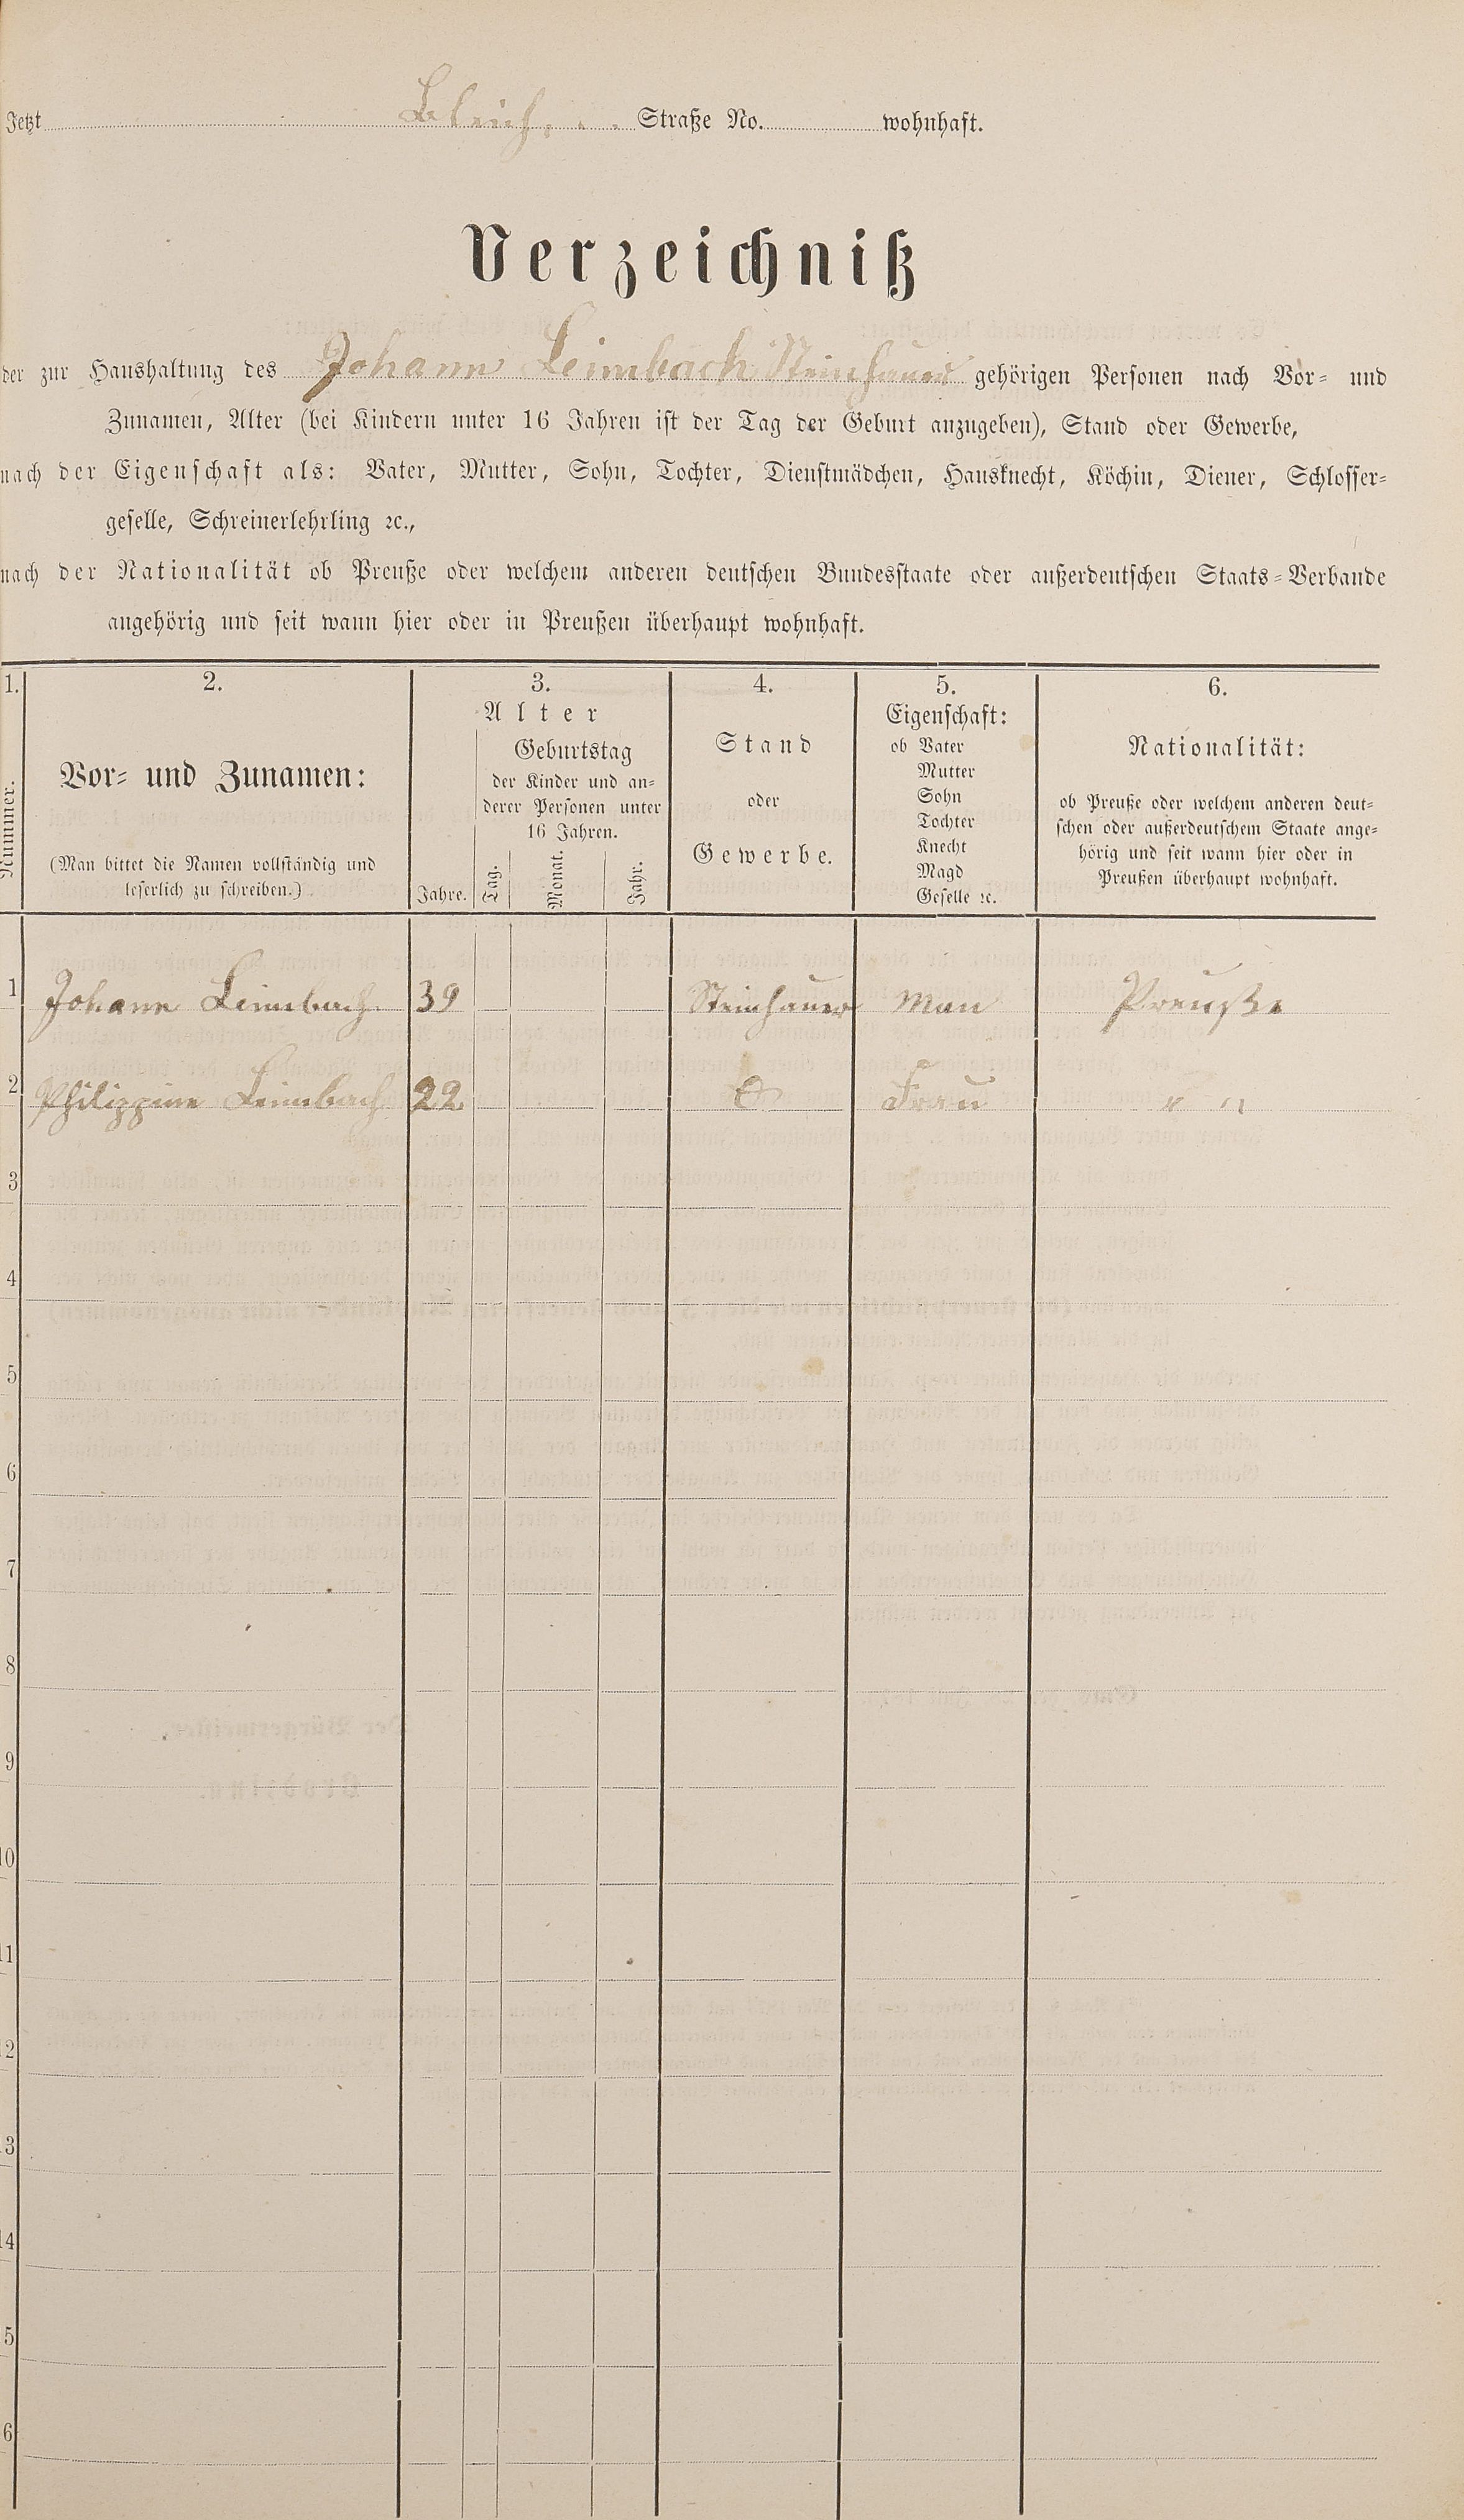 Jetzt Bleich. . . Straße No. wohnhaft.
Verzeichniß
der zur Haushaltung des Johann Leimbach Steinhauer gehörigen Personen nach Vor- und
Zunamen, Alter (bei Kindern unter 16 Jahren ist der Tag der Geburt anzugeben), Stand oder Gewerbe,
nach der Eigenschaft als: Vater, Mutter, Sohn, Tochter, Dienstmädchen, Hausknecht, Köchin, Diener, Schlosser-
geselle, Schreinerlehrling ꝛc.,
nach der Nationalität ob Preuße oder welchem anderen deutschen Bundesstaate oder außerdeutschen Staats-Verbande
angehörig und seit wann hier oder in Preußen überhaupt wohnhaft.
1. 2. 3. 4. 5. 6.
Nummer.
Vor- und Zunamen:
(Man bittet die Namen vollständig und
leserlich zu schreiben.)
Alter
Jahre.
Geburtstag
der Kinder und an-
derer Personen unter
16 Jahren.
Tag. Monat. Jahr.
Stand
oder
Gewerbe.
Eigenschaft:
ob Vater
Mutter
Sohn
Tochter
Knecht
Magd
Geselle ꝛc.
Nationalität:
ob Preuße oder welchem anderen deut-
schen oder außerdeutschem Staate ange-
hörig und seit wann hier oder in
Preußen überhaupt wohnhaft.
1 Johann Leimbach 39 Steinhauer Man Preuße
2 Philippine Leimbach 22 Frau " "
3
4
5
6
7
8
9
10
11
12
13
14
15
16